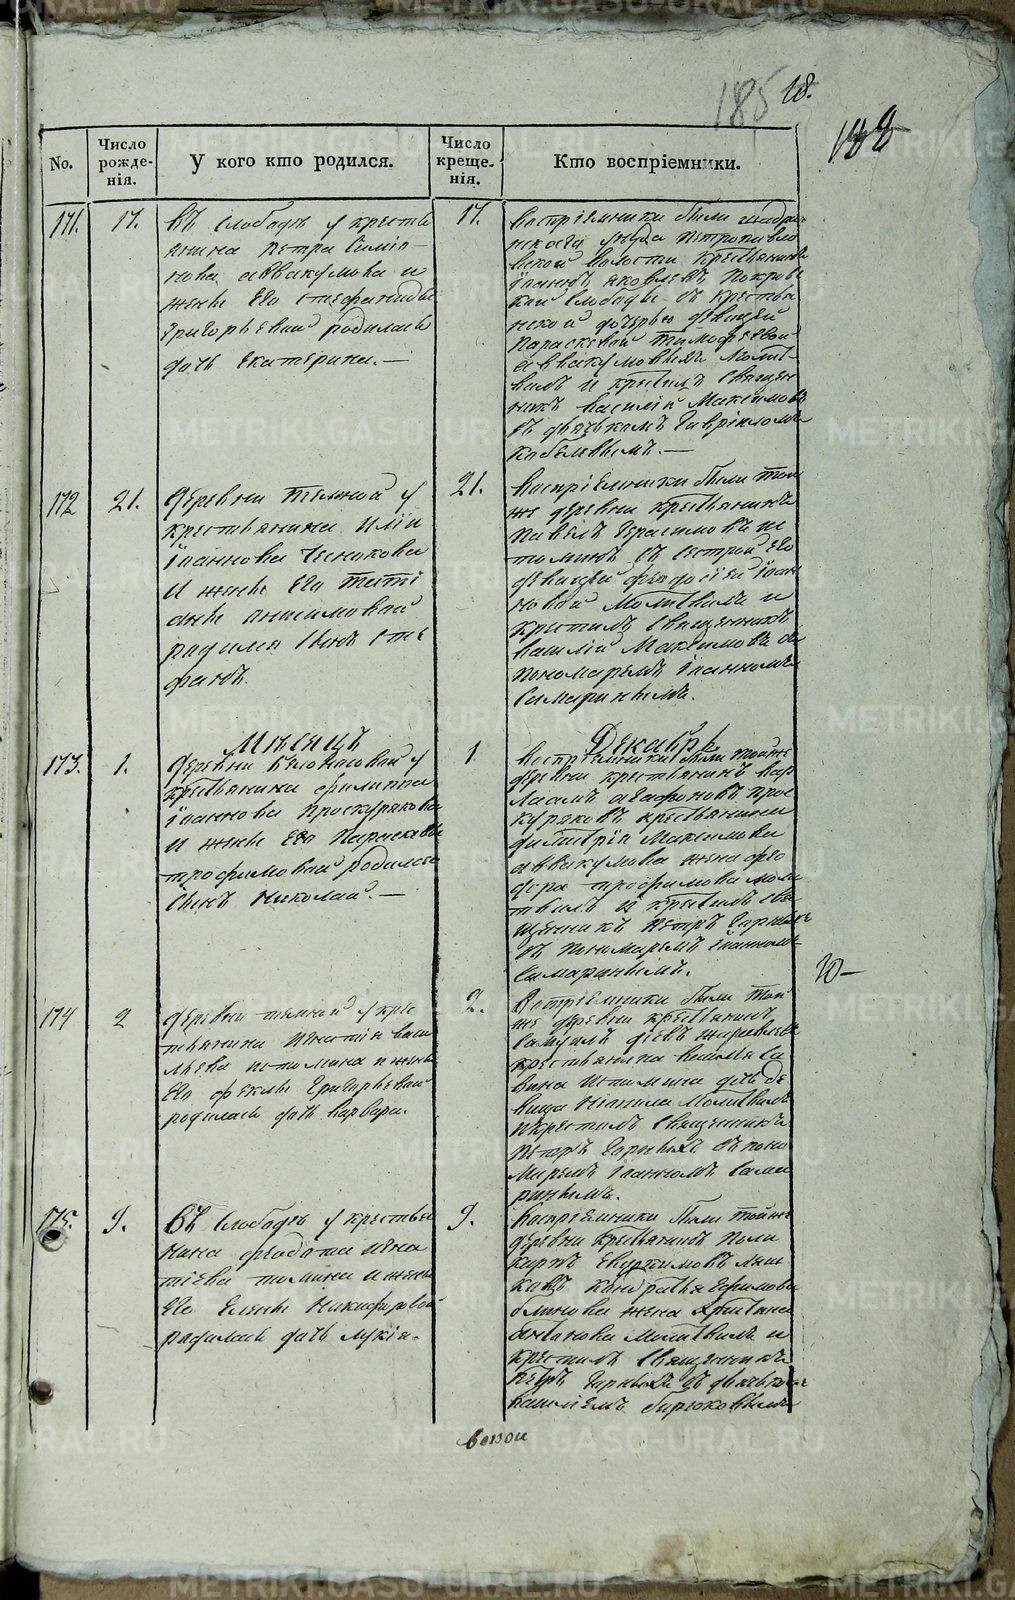 185
18.
188
No.
Число рожде-нія.
У кого кто родился.
Число креще-нія.
Кто воспріемники.
171.
17.
Въ Слободѣ у кресть
янина Петра Симіо-
нова Аввакумова и
жены его Стефаниды
Григорьевой родилась
дочь Екатерина.—
17.
Воспріемники были
уѣзда Петропавло
вской волости крестьянинъ
Іоаннъ Яковлевъ, Покров
кой слободы
ской дочерью дѣвицей
Параскевой Тимофеевой
Аввакумовыхъ Молит
вилъ и крестилъ Священ
никъ Василій Максимовъ
съ дьячькомъ Гавріиломъ
Кабелевымъ.—
172
21.
Деревни Темной у
крестьянина Иліи
Іоаннова Чеснокова
и жены его Татті
аны Анисимовой
родился Сынъ Сте
фанъ.
21.
Воспріемники были той
же деревни крестьянинъ
Павелъ Герасимовъ Ис
томинъ съ сестрой его
дѣвицей Феодосіей Іоан
новой Молитвилъ и
крестилъ Священникъ
Василій Максимовъ съ
пономаремъ Іоанномъ
Самаринымъ.
Мѣсяцъ
Декабрь
173.
1.
Деревни Белоносовой у
крестьянина Филиппа
Іоаннова Проскурякова
и жены его Парасковьи
Трофимовой родился
Сынъ Николай.—
1
Воспріемники были той же
деревни крестьянинъ Вар
лаамъ Агафоновъ Прос
куряковъ крестьянина
Димитрія Максимова
Аввакумова жена Фео
дора Трофимова моли
твилъ и крестилъ свя
щенникъ Петръ Горныхъ
съ пономаремъ Іоанномъ
Самаринымъ.
10—
174
2
Деревни Темной у крес
тьянина Игнатія Васи
льева Истомина и жены
его Феклы Григорьевой
родилась дочь Варвара.
2.
Воспріемники были той
же деревни крестьянинъ
крестьянина
Истомина дочь дѣ
вица Молитвилъ
и крестилъ Священникъ
Петръ Горныхъ съ поно
маремъ Іоанномъ Сама
ринымъ.
175.
9.
Въ Слободѣ у крестья
нина Федота Игна
тіева Томина и жены
его Елены Никифоровой
родилась дочь Лукія.
9.
Воспріемники были той же
деревни крестьянинъ Поли
карпъ
Кондратья Ефимова
Блинова жена Христина
Антонова Молитвилъ и
крестилъ Священникъ
Петръ Горныхъ съ дьячькомъ
Василіемъ Бирюковымъ
METRIKI.GASO-URAL.RU